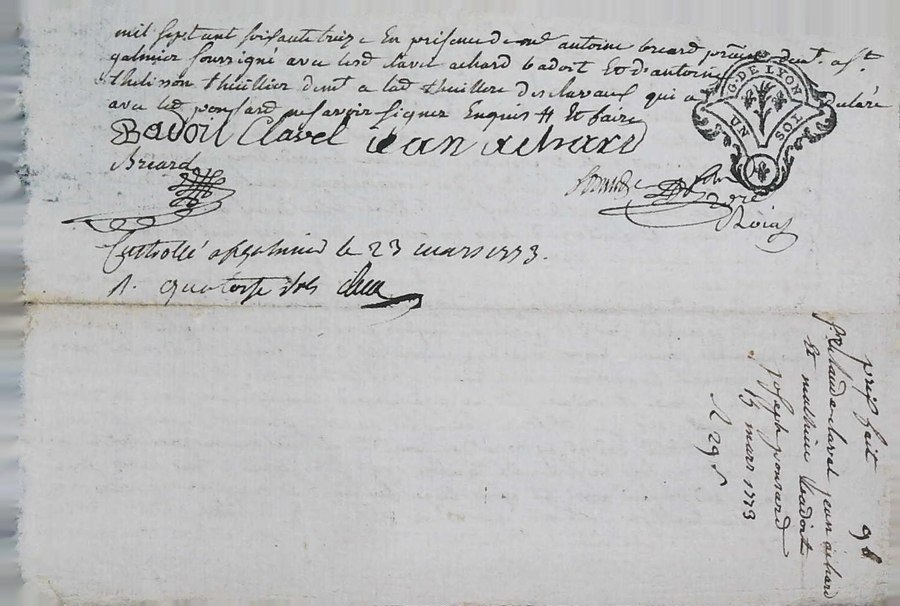 mil sept cent soixante treize En presence de me antoine breard pratn dem.t a st.
galmier soussigné avec lesd clavel achard badoit Et d'antoine
thelisson thuillier dem.t a lad thuillere des clavaux qui a declaré
avec led ponsard ne savoir signer Enquis Et faire
Badoit Clavel jean achard
Breard
G. DE LYON
UN SOL
Controllé a st galmier le 23 mars 1773.
R. quatorse sols
prix fait 9
clavel jean achard
Et mathieu badoit
joseph ponsard
13 mars 1773
29 s